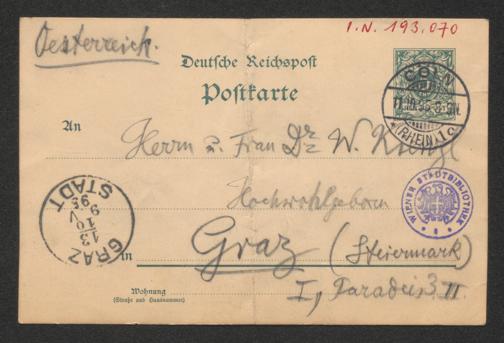 I.N. 193.070
Oesterreich.
Deutsche Reichspost
Postkarte
CÖLN
(RHEIN) 1
An
Herrn u. Frau Dr W. Kienzl
WIENER STADTBIBLIOTHEK
Hochwohlgeboren
GRAZ
STADT
13
10
95
in
Graz (Steiermark)
Wohnung
(Straße und Hausnummer)
I, Paradeis 3 II